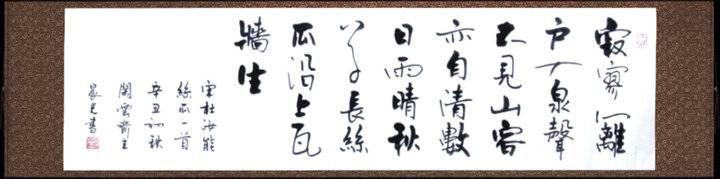 寂寥籬
戶入泉聲
不見山容
亦自清數
日雨晴秋
草長絲
瓜沿上瓦
牆生
宋杜汝能
絲瓜一首
辛丑初秋
閑雲齋主
光書